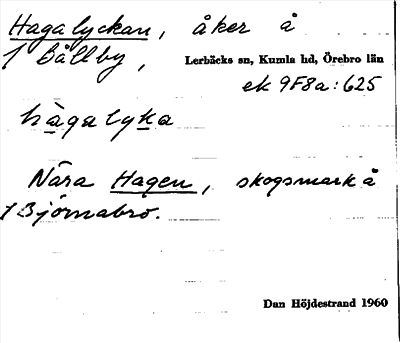 Hagalyckan, åker å
1 Bållby,
Lerbäcks sn, Kumla hd, Örebro län
ek 9F8a:625
hàgalyka
Nära Hagen, skogsmark å
1 Björnabro.
Dan Höjdestrand 1960